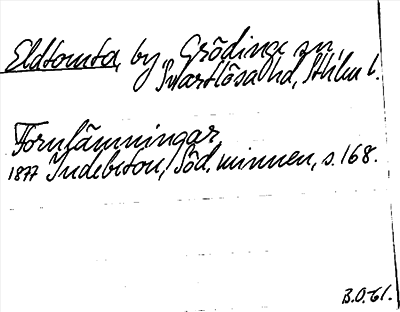 Eldtomta, by, Grödinge sn,
Svartlösa hd, Sthlm l.
Fornlämningar
1877 Indebetou, Söd. minnen, s. 168.
B.O. 61.